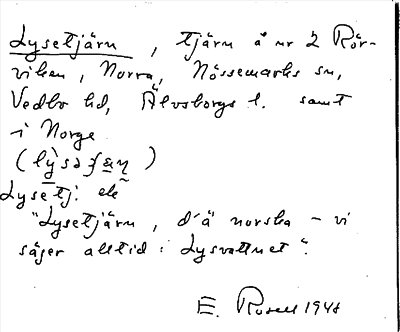 Lysetjärn, tjärn å nr 2 Rör-
viken, Norra, Nössemarks sn,
Vedbo hd, Älvsborgs l. samt
i Norge
Lysetj. ele
"Lysetjärn, d'ä norska - vi
säger alltid: Lysvattnet".
E. Rosell 1948